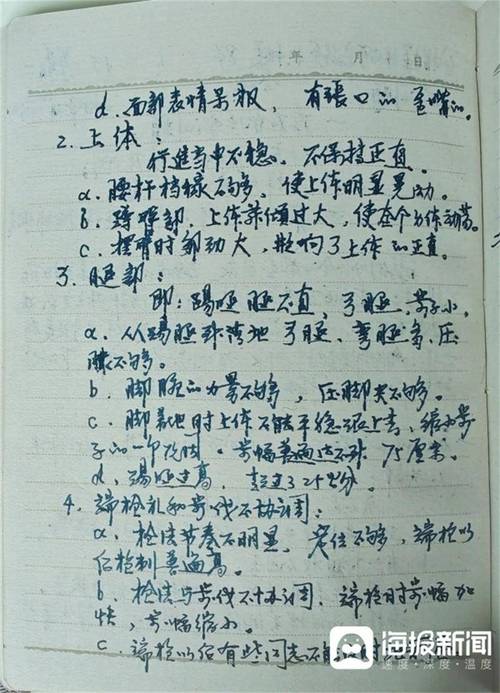 年 月 日
d. 面部表情呆板, 有张口的
2. 上体:
行进当中不稳。不保持正直。
a. 腰杆档缘不够, 使上体明显晃动。
b. 蹲臀部, 上体前倾过大, 使整个身体动荡。
c. 摆臂时部动大, 影响了上体的正直。
3. 腿部:
即: 踢腿腿不直, 弓腿, 步子小。
a. 从踢腿到落地弓腿、弯腿多、压
脚不够。
b. 脚腕的力量不够, 压脚尖不够。
c. 脚着地时上体不能平稳跟上去, 缩小步
子的一个改脚。步幅普遍达不到75厘米。
d. 踢腿过高, 超过了25公分。
4. 端枪礼和步伐不协调:
a. 枪法节奏不明显, 定位不够, 端枪以
后枪刺普遍高。
b. 枪法与步伐不协调, 端枪时步幅加
快, 步幅缩小。
c. 端枪以后有些同志不能
海报新闻
速度·深度·温度